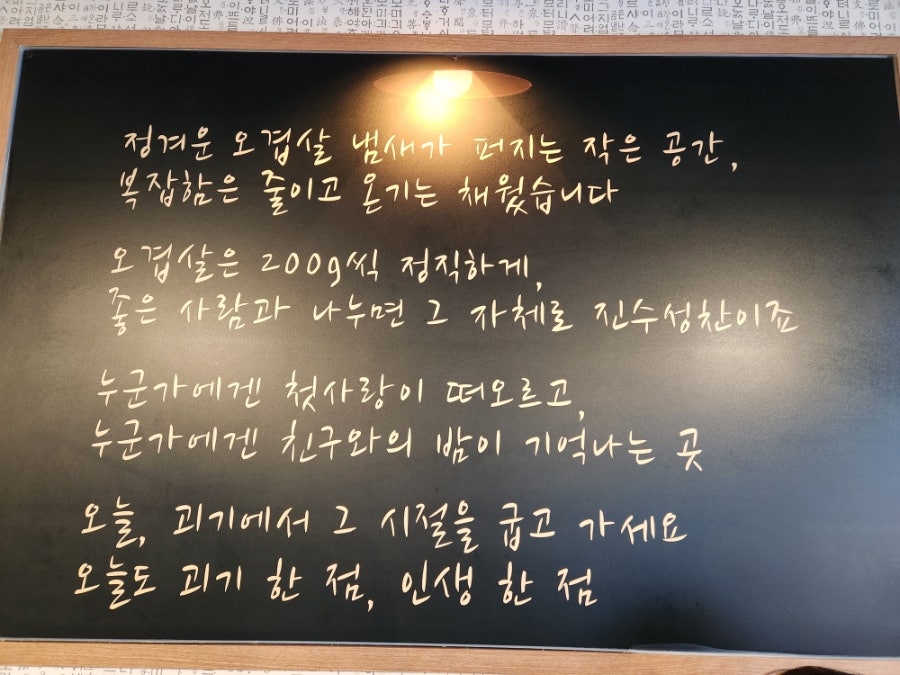 정겨운 오겹살 냄새가 퍼지는 작은 공간,
복잡함은 줄이고 온기는 채웠습니다
오겹살은 200g씩 정직하게,
좋은 사람과 나누면 그 자체로 진수성찬이죠
누군가에겐 첫사랑이 떠오르고,
누군가에겐 친구와의 밤이 기억나는 곳
오늘, 괴기에서 그 시절을 굽고 가세요
오늘도 괴기 한 점, 인생 한 점